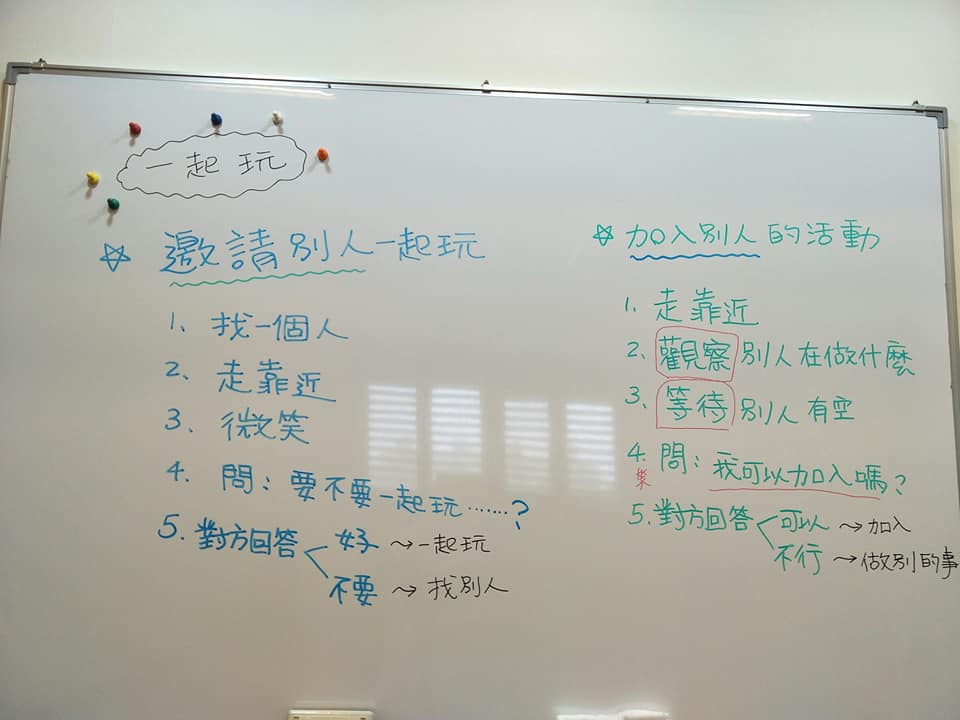 一起玩
☆ 邀請別人一起玩
1、找一個人
2、走靠近
3、微笑
4、問：要不要一起玩……？
5、對方回答
好 → 一起玩
不要 → 找別人
☆ 加入別人的活動
1、走靠近
2、觀察別人在做什麼
3、等待別人有空
4、問：我可以加入嗎？
5、對方回答
可以 → 加入
不行 → 做別的事